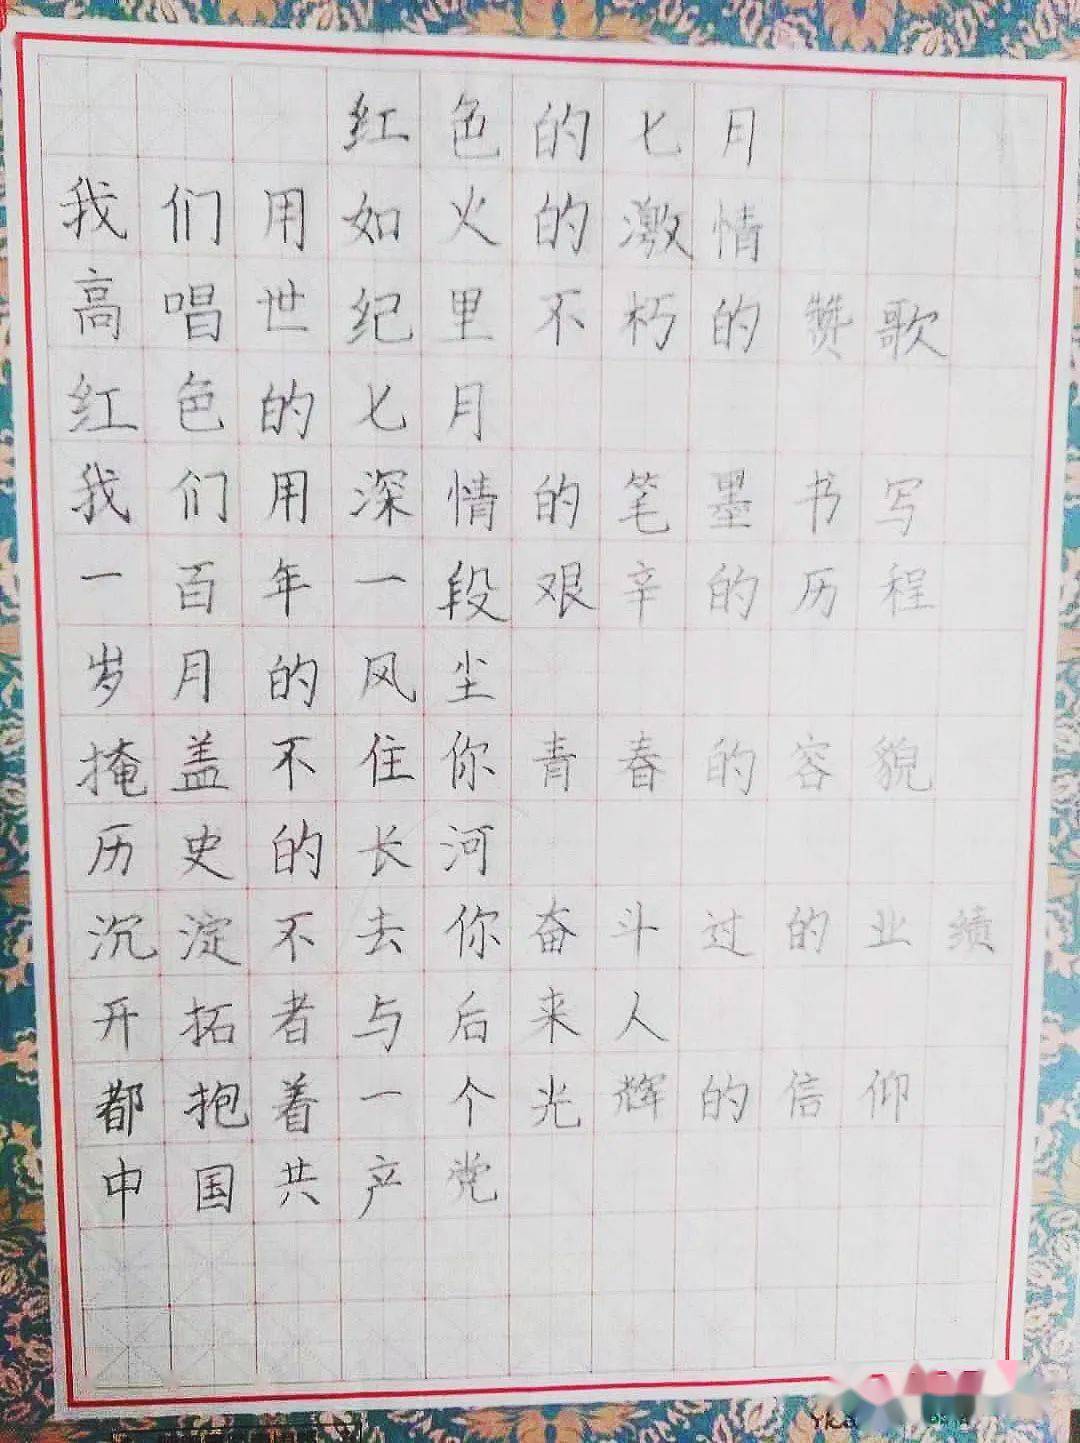 红色的七月
我们用如火的激情
高唱世纪里不朽的赞歌
红色的七月
我们用深情的笔墨书写
一百年一段艰辛的历程
岁月的风尘
掩盖不住你青春的容貌
历史的长河
沉淀不去你奋斗过的业绩
开拓者与后来人
都抱着一个光辉的信仰
中国共产党